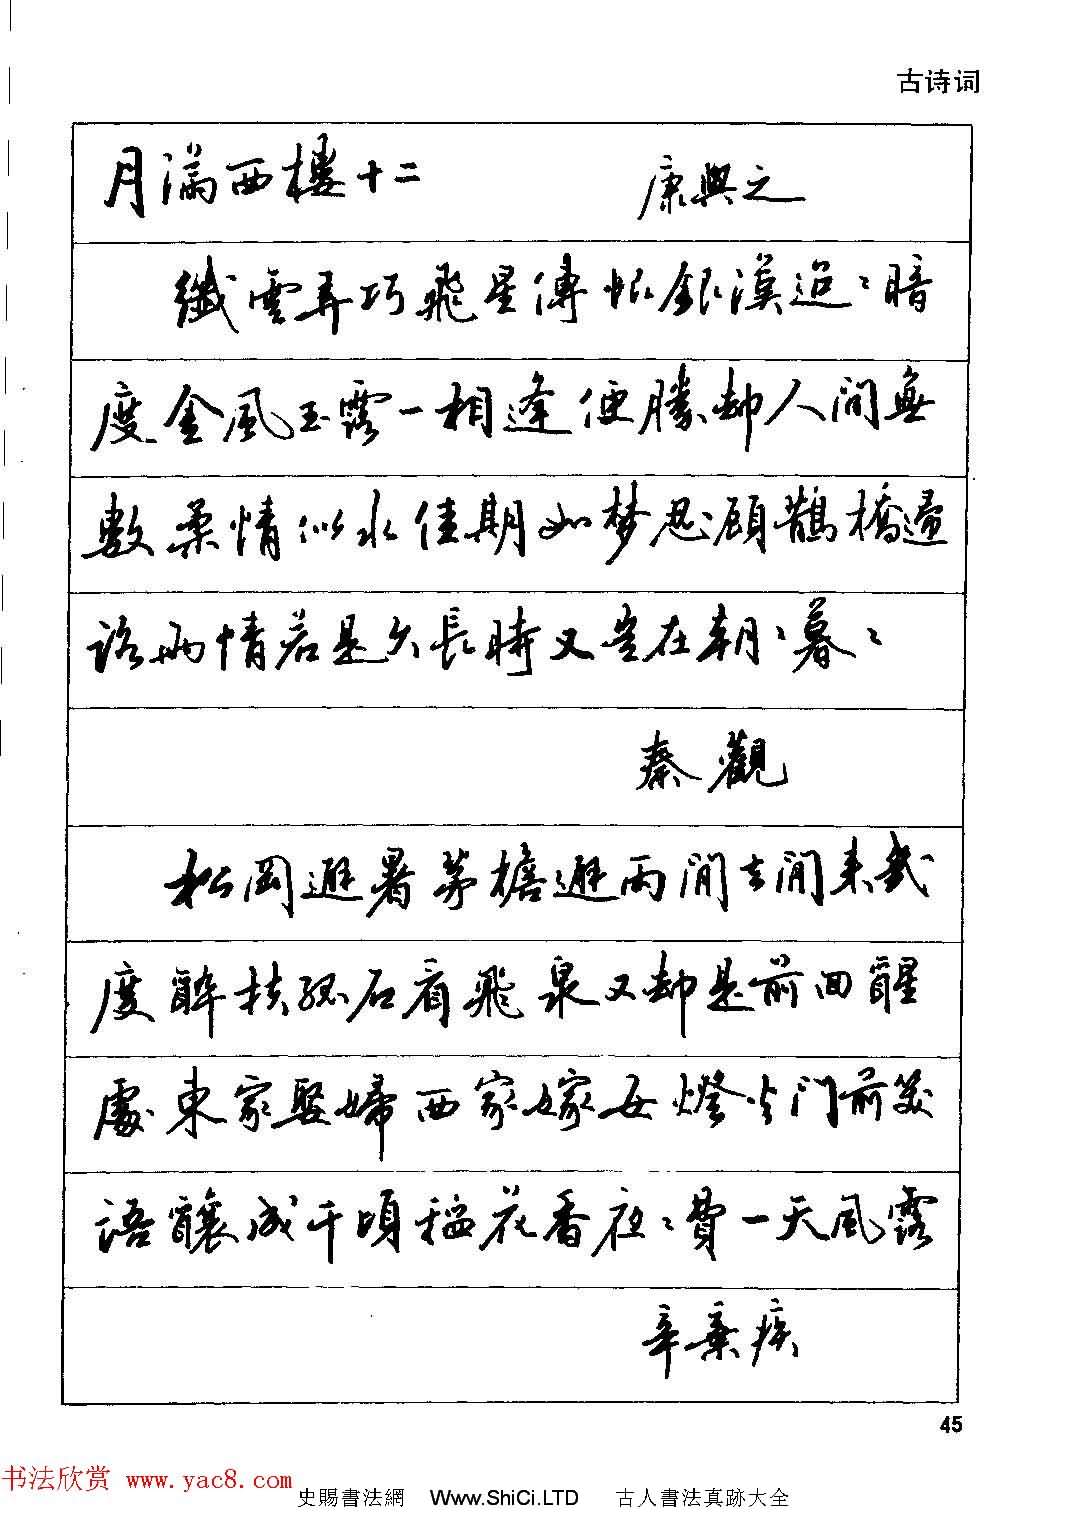 古诗词
月满西樓十二 康與之
纖雲弄巧飛星傳恨銀漢迢〻暗
度金風玉露一相逢便勝却人間無
數柔情似水佳期如梦忍顧鵲橋歸
路兩情若是久長時又豈在朝〻暮〻
秦觀
松岡避暑茅檐避雨閒去閒来幾
度醉扶孤石看飛泉又却是前回醒
處東家娶婦西家嫁女燈火门前笑
語釀成千頃稻花香夜〻費一天風露
辛棄疾
45
书法欣赏 www.yac8.com
史賜書法網 Www.ShiCi.LTD 古人書法真跡大全